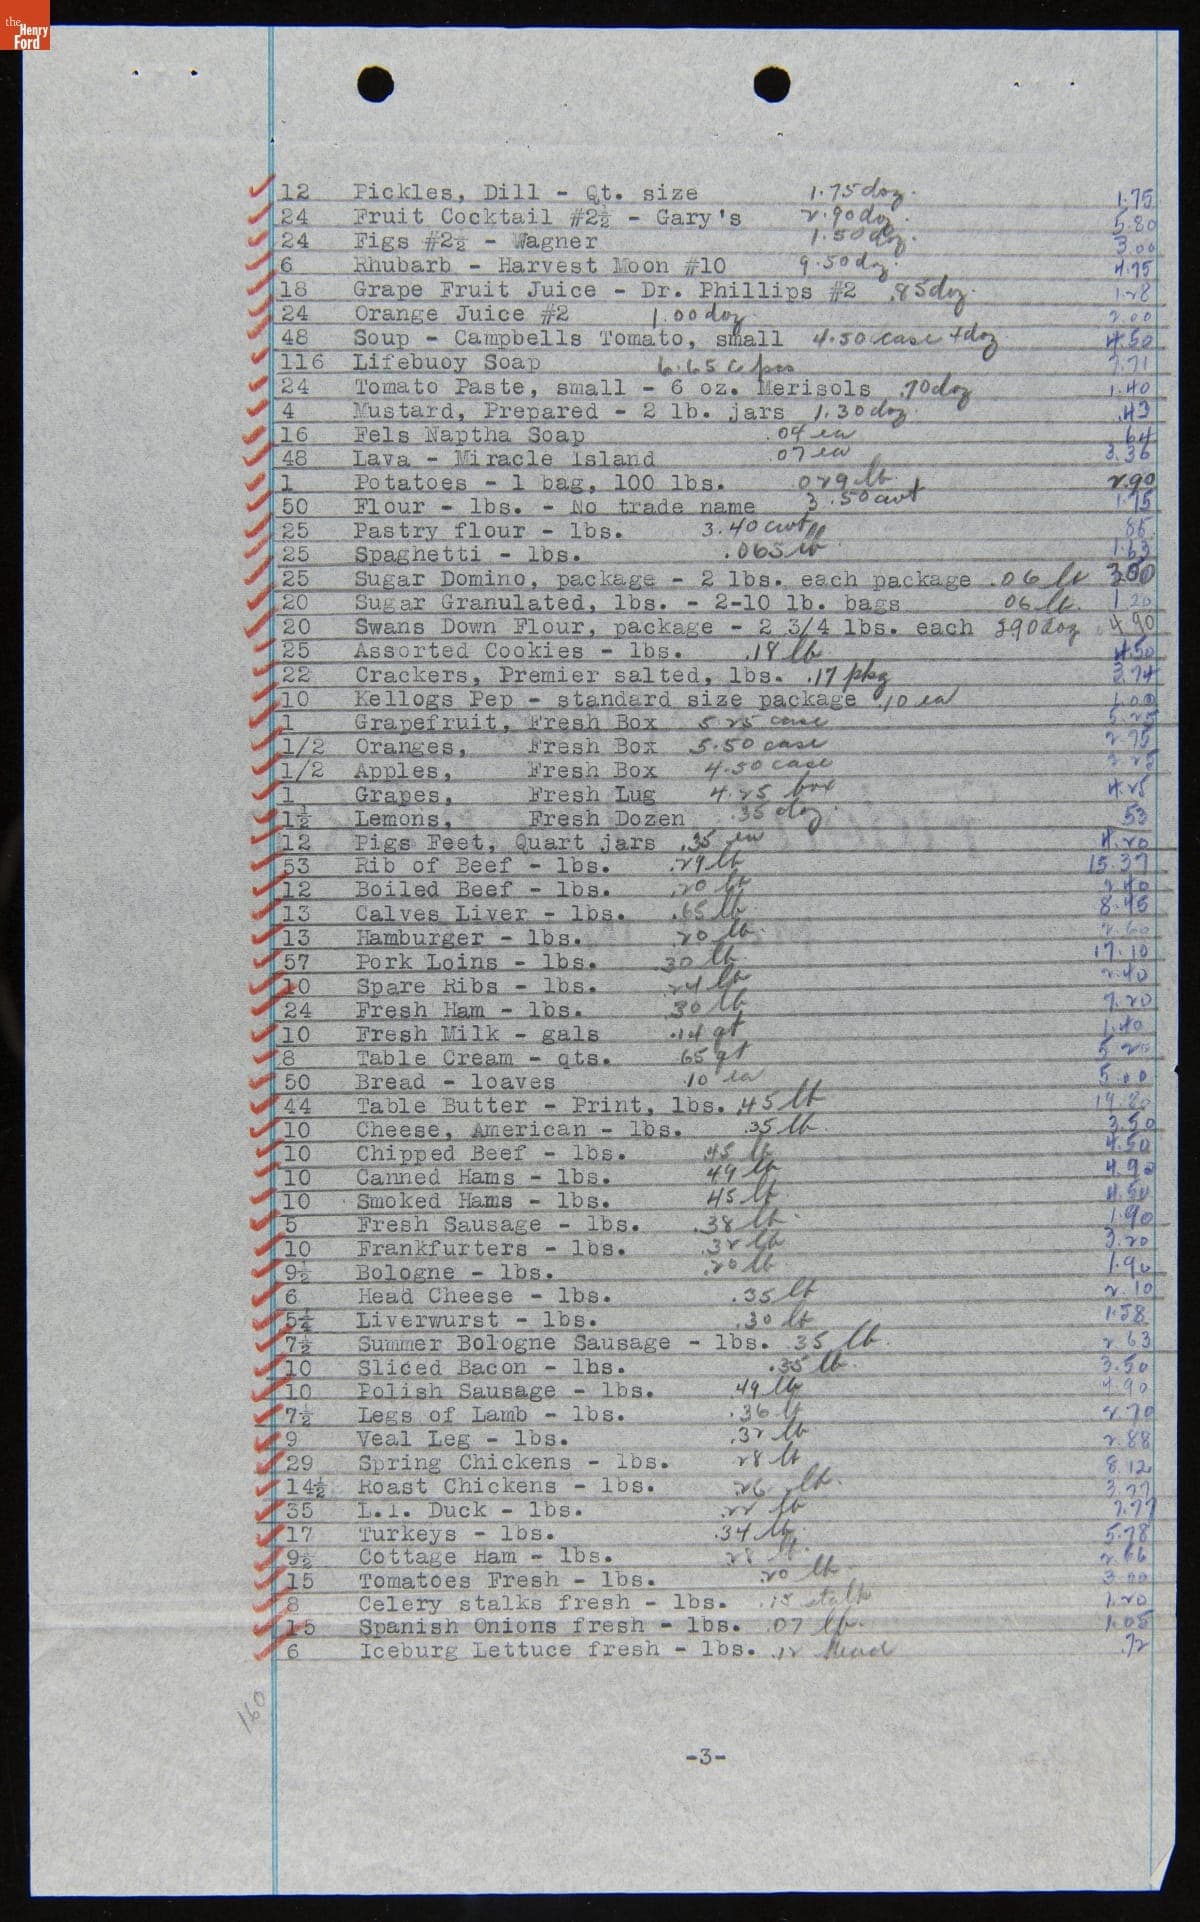 the Henry Ford
12 Pickles, Dill - Qt. size 1.75 doz. 1.75
24 Fruit Cocktail #2½ - Gary's 2.90 doz. 5.80
24 Figs #2½ - Wagner 1.50 doz. 3.00
6 Rhubarb - Harvest Moon #10 9.50 doz. 4.75
18 Grape Fruit Juice - Dr. Phillips #2 .85 doz. 1.28
24 Orange Juice #2 1.00 doz. 2.00
48 Soup - Campbells Tomato, small 4.50 case 4 doz 4.50
116 Lifebuoy Soap 6.65 c pcs 7.71
24 Tomato Paste, small - 6 oz. Merisols .70 doz 1.40
4 Mustard, Prepared - 2 lb. jars 1.30 doz. .43
16 Fels Naptha Soap .04 ea 64
48 Lava - Miracle Island .07 ea 3.36
1 Potatoes - 1 bag, 100 lbs. 029 lb. 2.90
50 Flour - lbs. - No trade name 3.50 cwt 1.75
25 Pastry flour - lbs. 3.40 cwt 85
25 Spaghetti - lbs. .065 lb 1.63
25 Sugar Domino, package - 2 lbs. each package .06 lb 3.00
20 Sugar Granulated, lbs. - 2-10 lb. bags 06 lb. 1.20
20 Swans Down Flour, package - 2 3/4 lbs. each 290 doz 4.90
25 Assorted Cookies - lbs. .18 lb 4.50
22 Crackers, Premier salted, lbs. .17 pkg 3.74
10 Kellogs Pep - standard size package .10 ea 1.00
1 Grapefruit, Fresh Box 5.25 case 5.25
1/2 Oranges, Fresh Box 5.50 case 2.75
1/2 Apples, Fresh Box 4.50 case 2.25
1 Grapes, Fresh Lug 4.25 box 4.25
1½ Lemons, Fresh Dozen .35 doz. 53
12 Pigs Feet, Quart jars .35 ea 4.20
53 Rib of Beef - lbs. .29 lb 15.37
12 Boiled Beef - lbs. .20 lb 2.40
13 Calves Liver - lbs. .65 lb 8.45
13 Hamburger - lbs. .20 lb. 2.60
57 Pork Loins - lbs. 30 lb 17.10
10 Spare Ribs - lbs. .24 lb 2.40
24 Fresh Ham - lbs. 30 lb 7.20
10 Fresh Milk - gals .14 qt 1.40
8 Table Cream - qts. .65 qt 5.20
50 Bread - loaves .10 ea 5.00
44 Table Butter - Print, lbs. .45 lb 19.80
10 Cheese, American - lbs. .35 lb. 3.50
10 Chipped Beef - lbs. 45 lb 4.50
10 Canned Hams - lbs. 49 lb 4.90
10 Smoked Hams - lbs. 45 lb. 4.50
5 Fresh Sausage - lbs. .38 lb. 1.90
10 Frankfurters - lbs. .32 lb 3.20
9½ Bologne - lbs. .20 lb 1.90
6 Head Cheese - lbs. .35 lb 2.10
5¼ Liverwurst - lbs. .30 lb 1.58
7½ Summer Bologne Sausage - lbs. .35 lb. 2.63
10 Sliced Bacon - lbs. .35 lb. 3.50
10 Polish Sausage - lbs. .49 lb 4.90
7½ Legs of Lamb - lbs. .36 lb 2.70
9 Veal Leg - lbs. .32 lb 2.88
29 Spring Chickens - lbs. 28 lb 8.12
14½ Roast Chickens - lbs. .26 lb. 3.77
35 L.I. Duck - lbs. .22 lb 7.77
17 Turkeys - lbs. .34 lb. 5.78
9½ Cottage Ham - lbs. 28 lb. 2.66
15 Tomatoes Fresh - lbs. .20 lb. 3.00
8 Celery stalks fresh - lbs. .15 stalk 1.20
15 Spanish Onions fresh - lbs. .07 lb. 1.05
6 Iceburg Lettuce fresh - lbs. .12 Head .72
160
-3-